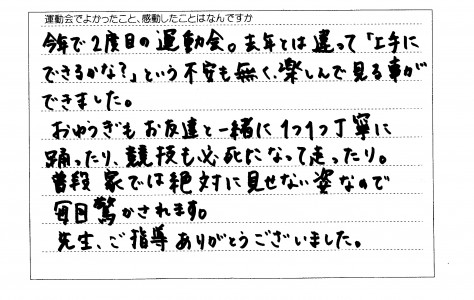 運動会でよかったこと、感動したことはなんですか
今年で2度目の運動会。去年とは違って「上手に
できるかな?」という不安も無く、楽しんで見る事が
できました。
おゆうぎもお友達と一緒に1つ1つ丁寧に
踊ったり、競技も必死になって走ったり。
普段家では絶対に見せない姿なので
毎日驚かされます。
先生、ご指導ありがとうございました。